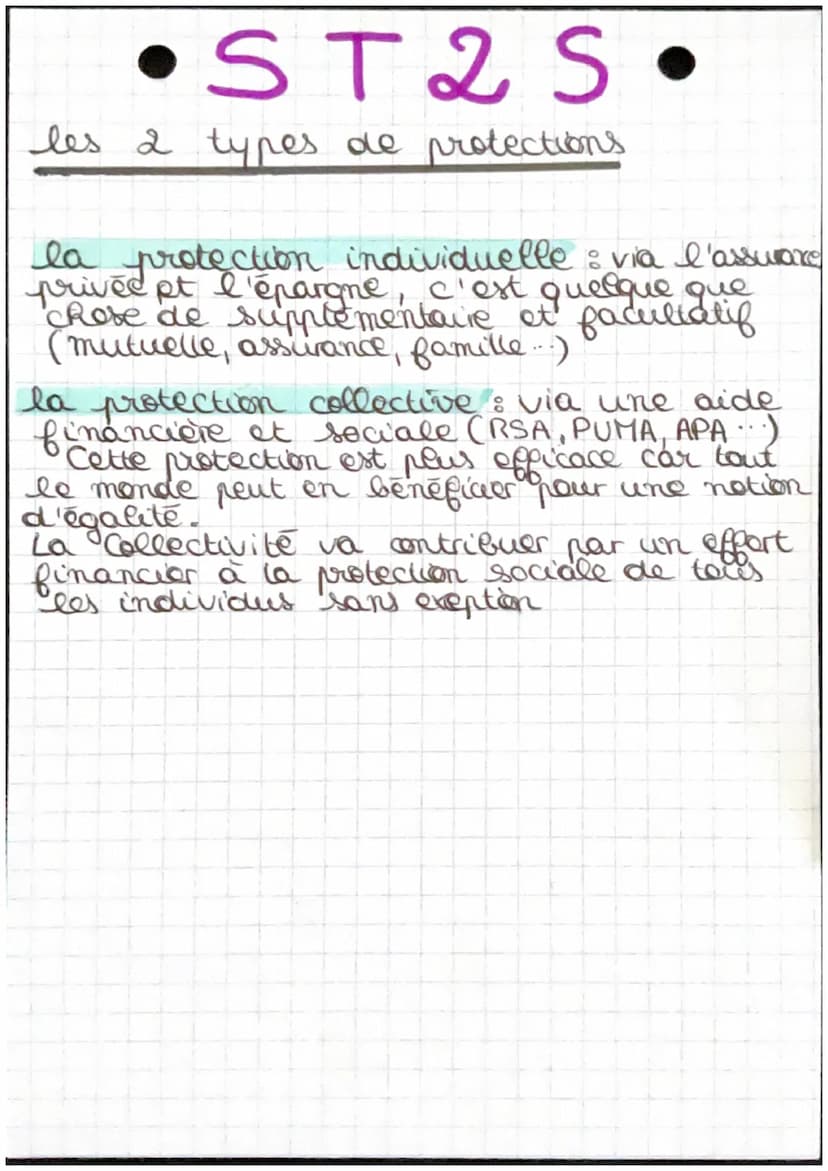 • ST2S •
les 2 types de protections
la protection individuelle : via l'assurance
privée et l'épargne, c'est quelque que
chose de supplémentaire et facultatif
(mutuelle, assurance, famille...)
la protection collective : via une aide
financière et sociale (RSA, PUMA, APA...)
Cette protection est plus efficace car tout
le monde peut en bénéficier pour une notion
d'égalité.
La collectivité va contribuer par un effort
financier à la protection sociale de tous
les individus sans exeption